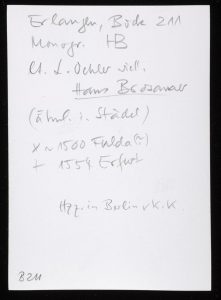 Erlangen, Bock 211
Monogr. HB
lt. L. Oehler viell.
Hans Brosamer
(Ähnl. i. Städel)
× ~ 1500 Fulda (?)
+ 1554 Erfurt
Hpz. in Berlin v K.K.
B 211